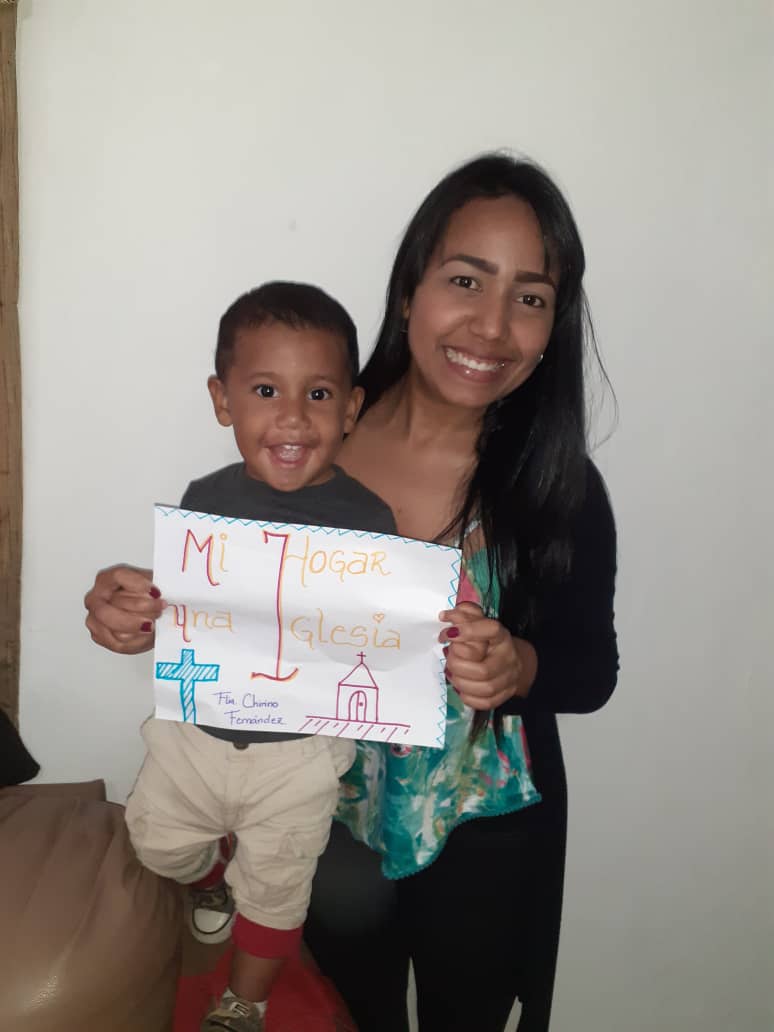 Mi Hogar
una Iglesia
Flia. Chirino
Fernández